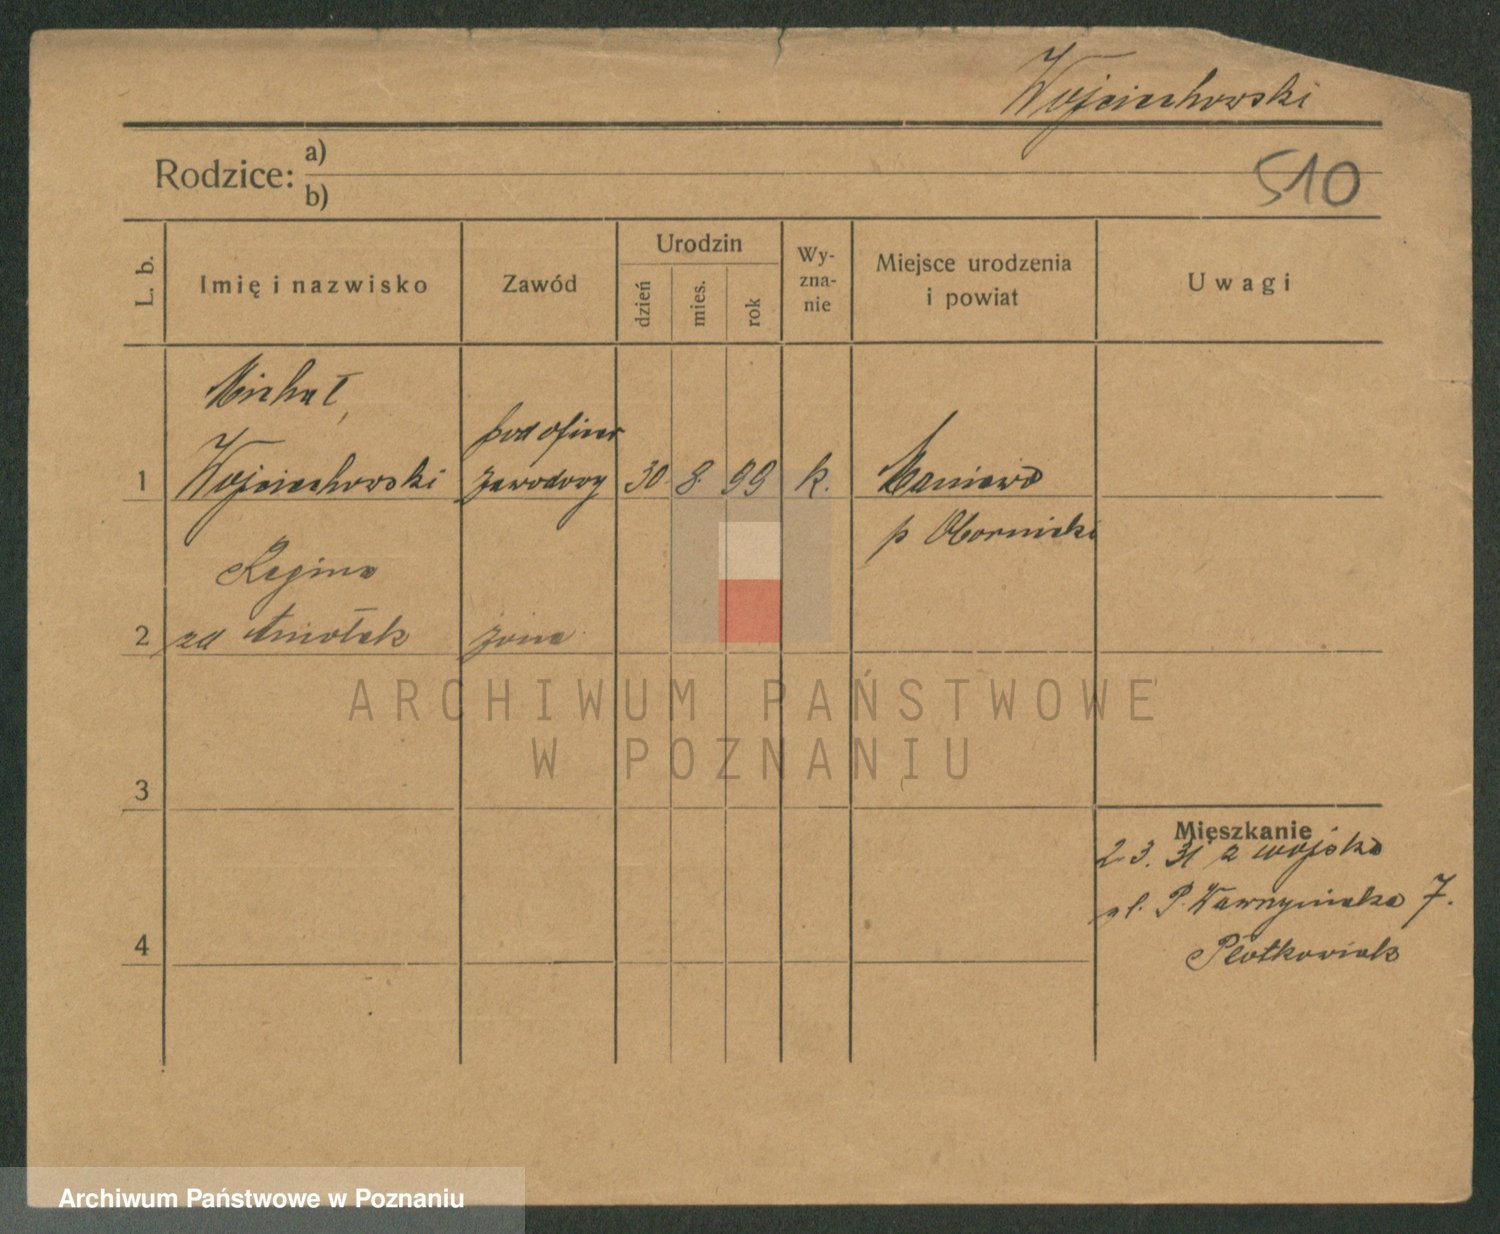 Wojciechowski
Rodzice:
a)
b)
510
L. b.
Imię i nazwisko
Zawód
Urodzin
dzień
mies.
rok
Wy-
zna-
nie
Miejsce urodzenia
i powiat
Uwagi
Michał
Wojciechowski
podoficer
zawodowy
1
30
8
99
k.
Maniewo
p Obornicki
Regina
2
zd Aniołek
żona
3
Mieszkanie
2. 3. 31 z wojska
ul. P. Wawrzyniaka 7.
Plotkowiak
4
ARCHIWUM PAŃSTWOWE
W POZNANIU
Archiwum Państwowe w Poznaniu